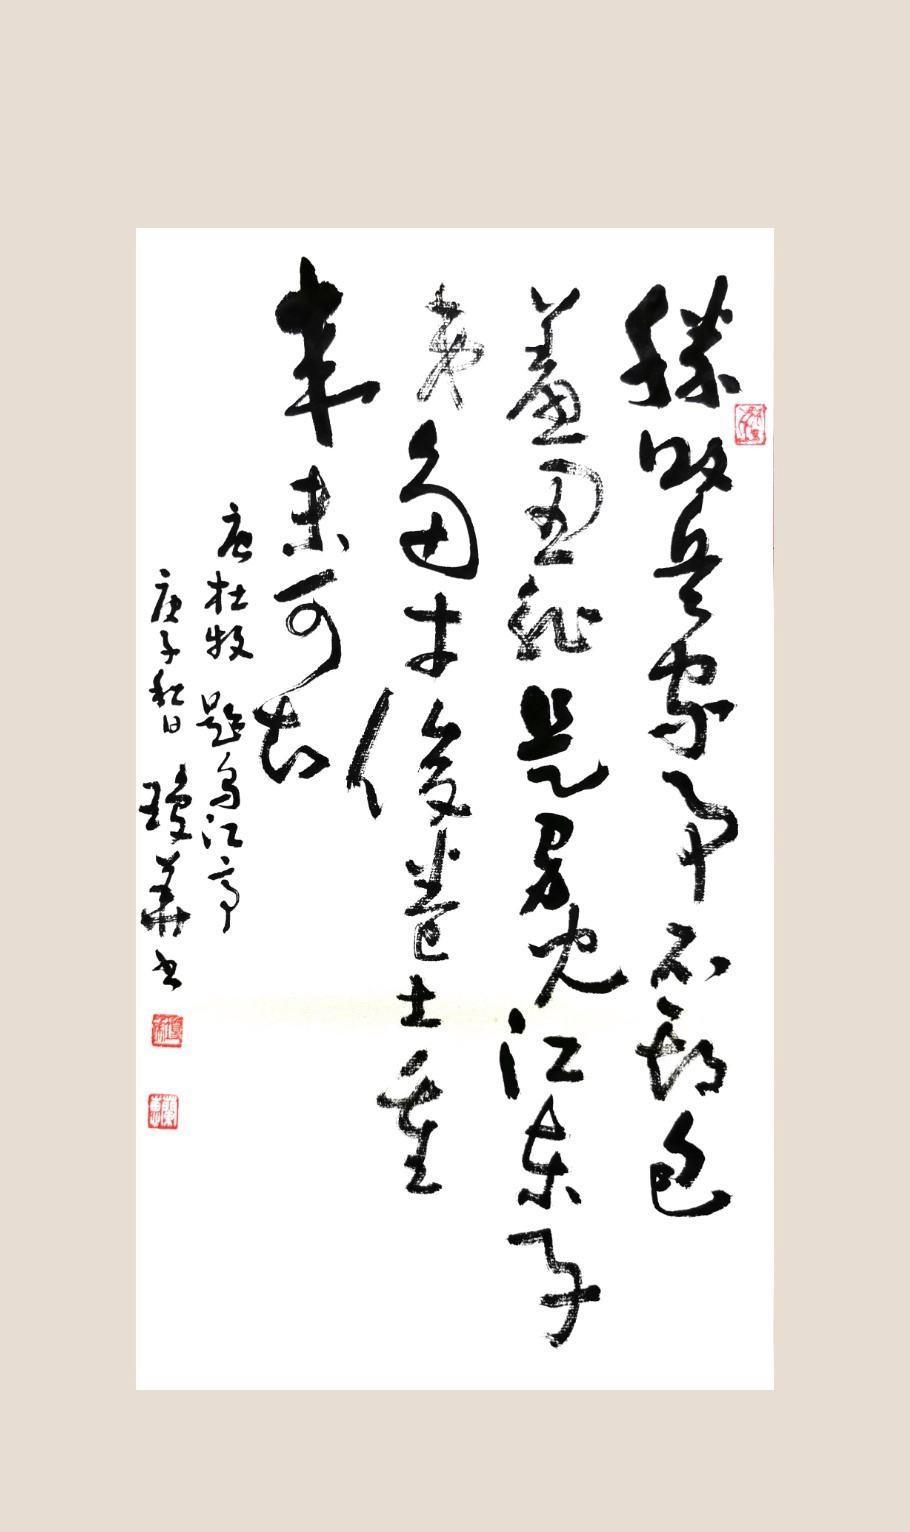 勝敗兵家事不期包
羞忍耻是男兒江東子
弟多才俊卷土重
來未可知
唐杜牧題烏江亭
庚子秋日瓊華書